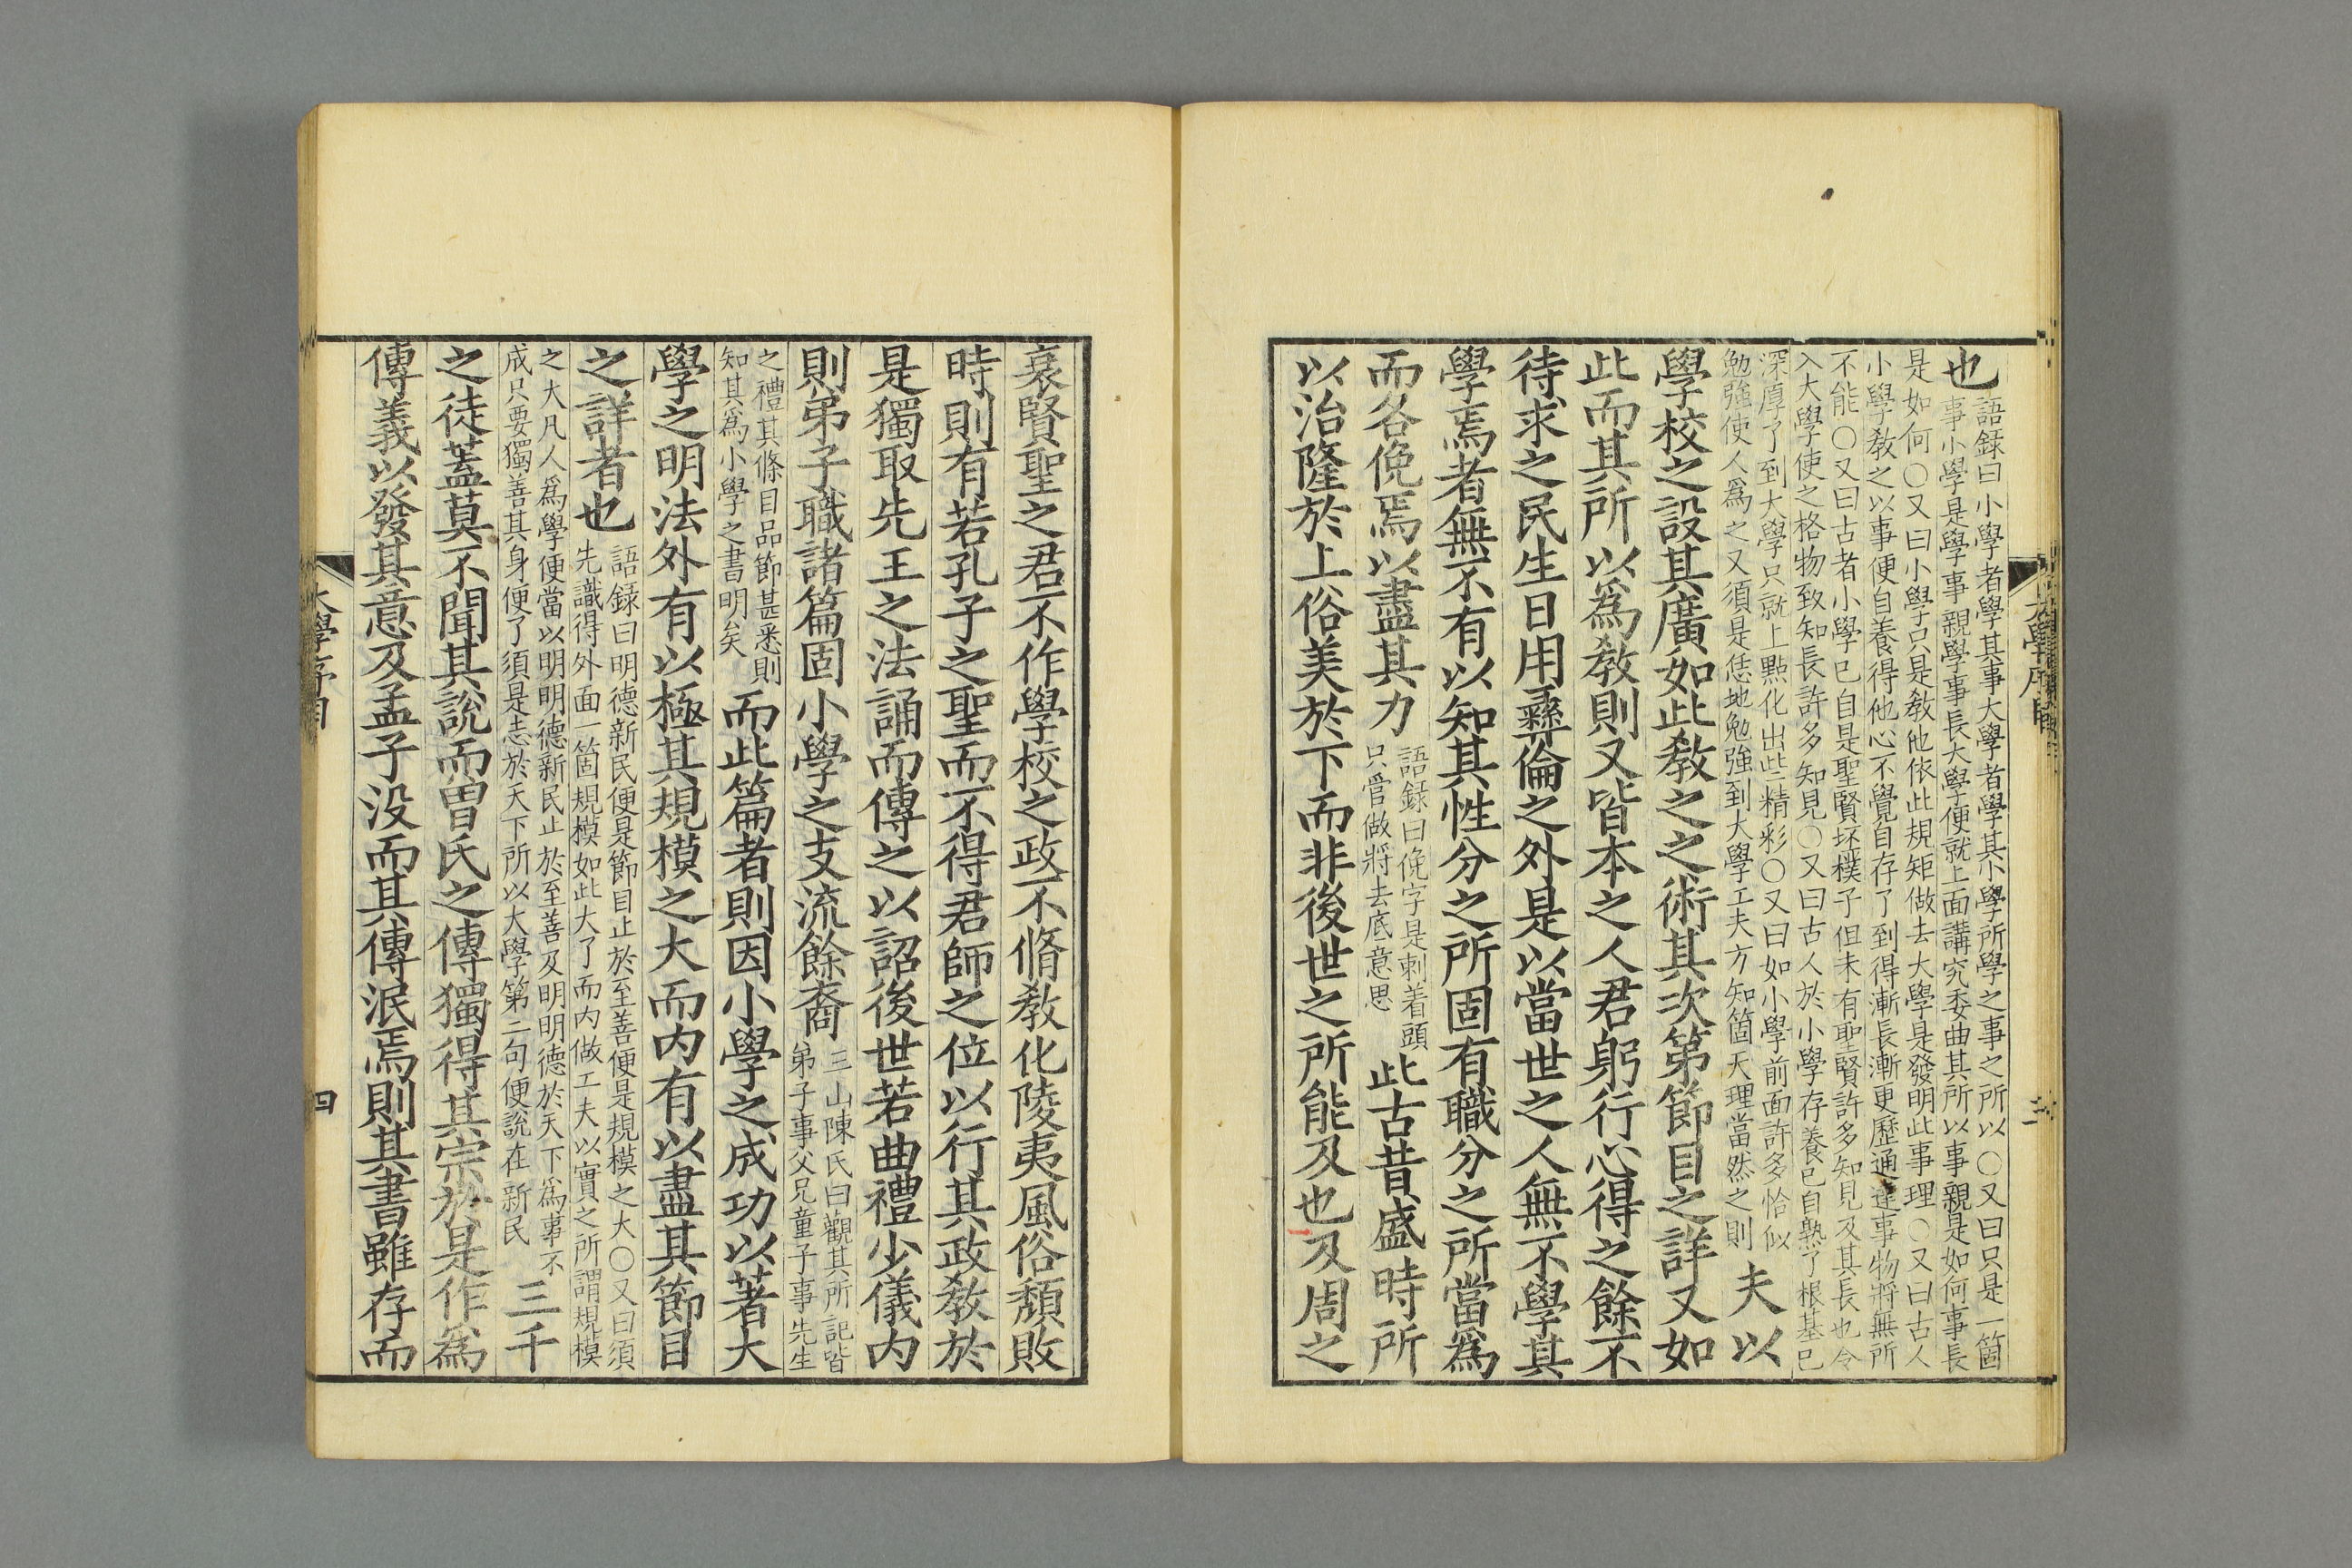 也
語録曰小學者學其事大學者學其小學所學之事之所以○又曰只是一箇
事小學是學事親學事長大學便就上面講究委曲其所以事親是如何事長
是如何○又曰小學只是敎他依此規矩做去大學是發明此事理○又曰古人
小學敎之以事便自養得他心不覺自存了到得漸長漸更歷通達事物將無所
不能○又曰古者小學已自是聖賢坯樸子但未有聖賢許多知見及其長也令
入大學使之格物致知長許多知見○又曰古人於小學存養已自熟了根基已
深厚了到大學只就上點化出些精彩○又曰如小學前面許多恰似
勉強使人爲之又須是恁地勉強到大學工夫方知箇天理當然之則
夫以
學校之設其廣如此敎之之術其次第節目之詳又如
此而其所以爲敎則又皆本之人君躬行心得之餘不
待求之民生日用彛倫之外是以當世之人無不學其
學焉者無不有以知其性分之所固有職分之所當爲
而各俛焉以盡其力
語録曰俛字是刺着頭
只管做將去底意思
此古昔盛時所
以治隆於上俗美於下而非後世之所能及也及周之
衰賢聖之君不作學校之政不脩敎化陵夷風俗頹敗
時則有若孔子之聖而不得君師之位以行其政敎於
是獨取先王之法誦而傳之以詔後世若曲禮少儀内
則弟子職諸篇固小學之支流餘裔
三山陳氏曰觀其所記皆
弟子事父兄童子事先生
之禮其條目品節甚悉則
知其爲小學之書明矣
而此篇者則因小學之成功以著大
學之明法外有以極其規模之大而内有以盡其節目
之詳者也
語録曰明德新民便是節目止於至善便是規模之大○又曰須
先識得外面一箇規模如此大了而内做工夫以實之所謂規模
之大凡人爲學便當以明明德新民止於至善及明明德於天下爲事不
成只要獨善其身便了須是志於天下所以大學第二句便說在新民
三千
之徒蓋莫不聞其說而曾氏之傳獨得其宗於是作爲
傳義以發其意及孟子没而其傳泯焉則其書雖存而
大學序
四